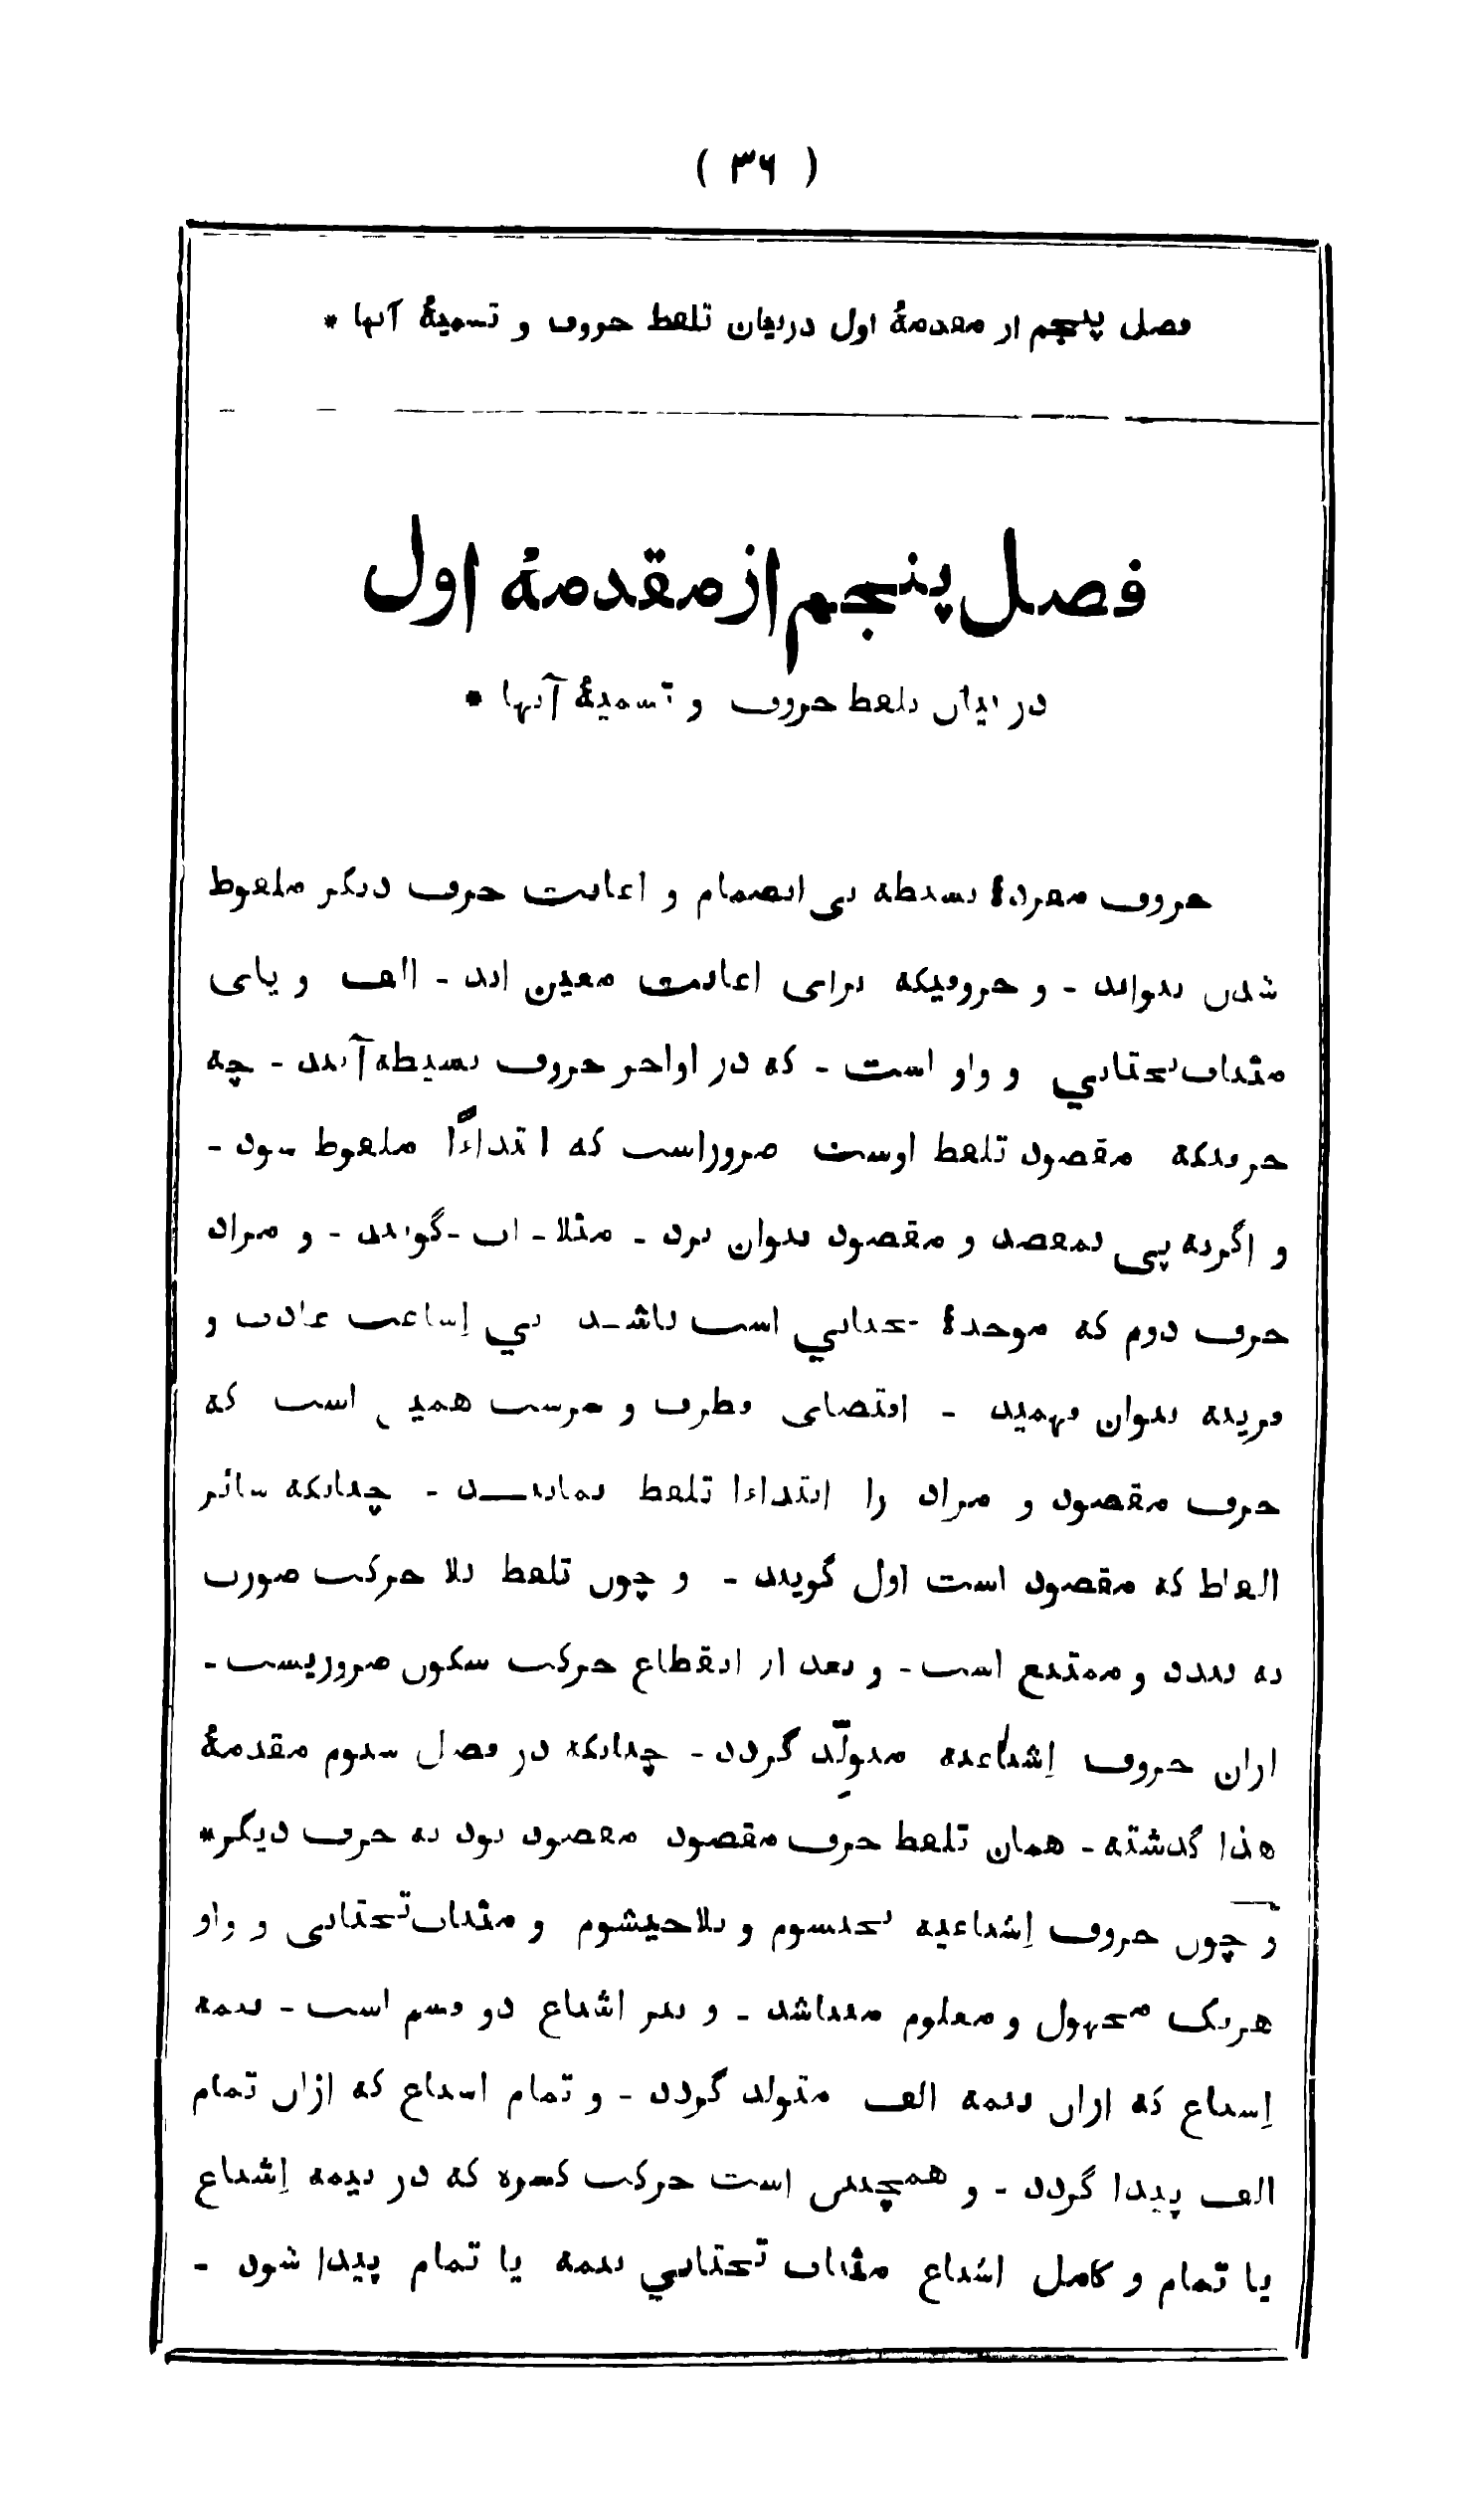 ( ۳۶ )
فصل پنجم از مقدمهٔ اول دربیان تلفظ حروف و تسمیهٔ آنها *
فصل پنجم از مقدمهٔ اول
در بیان تلفظ حروف و تسمیهٔ آنها *
حروف مفردهٔ بسیطه بی انضمام و اعانت حرف دیگر ملفوظ
شدن نتواند - و حروفیکه برای اعانت معین اند - الف و یای
مثناب تحتانی و واو است - که در اواخر حروف بسیطه آیند - چه
حرفیکه مقصود تلفظ اوست ضروراست که ابتداءً ملفوظ شود -
و اگرنه پی بمقصد و مقصود نتوان برد - مثلا - اب - گویند - و مراد
حرف دوم که موحدهٔ تحتانی است باشد بی إساعت عادت و
قرینه نتوان فهمید - اقتضای فطرت و فرست همین است که
حرف مقصود و مراد را ابتداءا تلفظ نمایند - چنانکه سائر
الفاظ که مقصود است اول گویند - و چون تلفظ بلا حرکت صورت
نه بندد و ممتنع است - و بعد از انقطاع حرکت سکون ضروریست -
ازان حروف إشباعیه متولّد گردد - چنانکه در فصل سیوم مقدمهٔ
هذا گذشته - همان تلفظ حرف مقصود مقصود بود نه حرف دیگر *
و چون حروف إشباعیه بخیسوم و بلاخیشوم و مثناب تحتانی و واو
هریک مجهول و معلوم میباشد - و نیز اشباع دو قسم است - نیمه
إشباع که ازان نیمه الف متولد گردد - و تمام اشباع که ازان تمام
الف پیدا گردد - و همچنین است حرکت کسره که در نیمه إشباع
یا تمام و کامل اشباع مثناب تحتانی نیمه یا تمام پیدا شود -